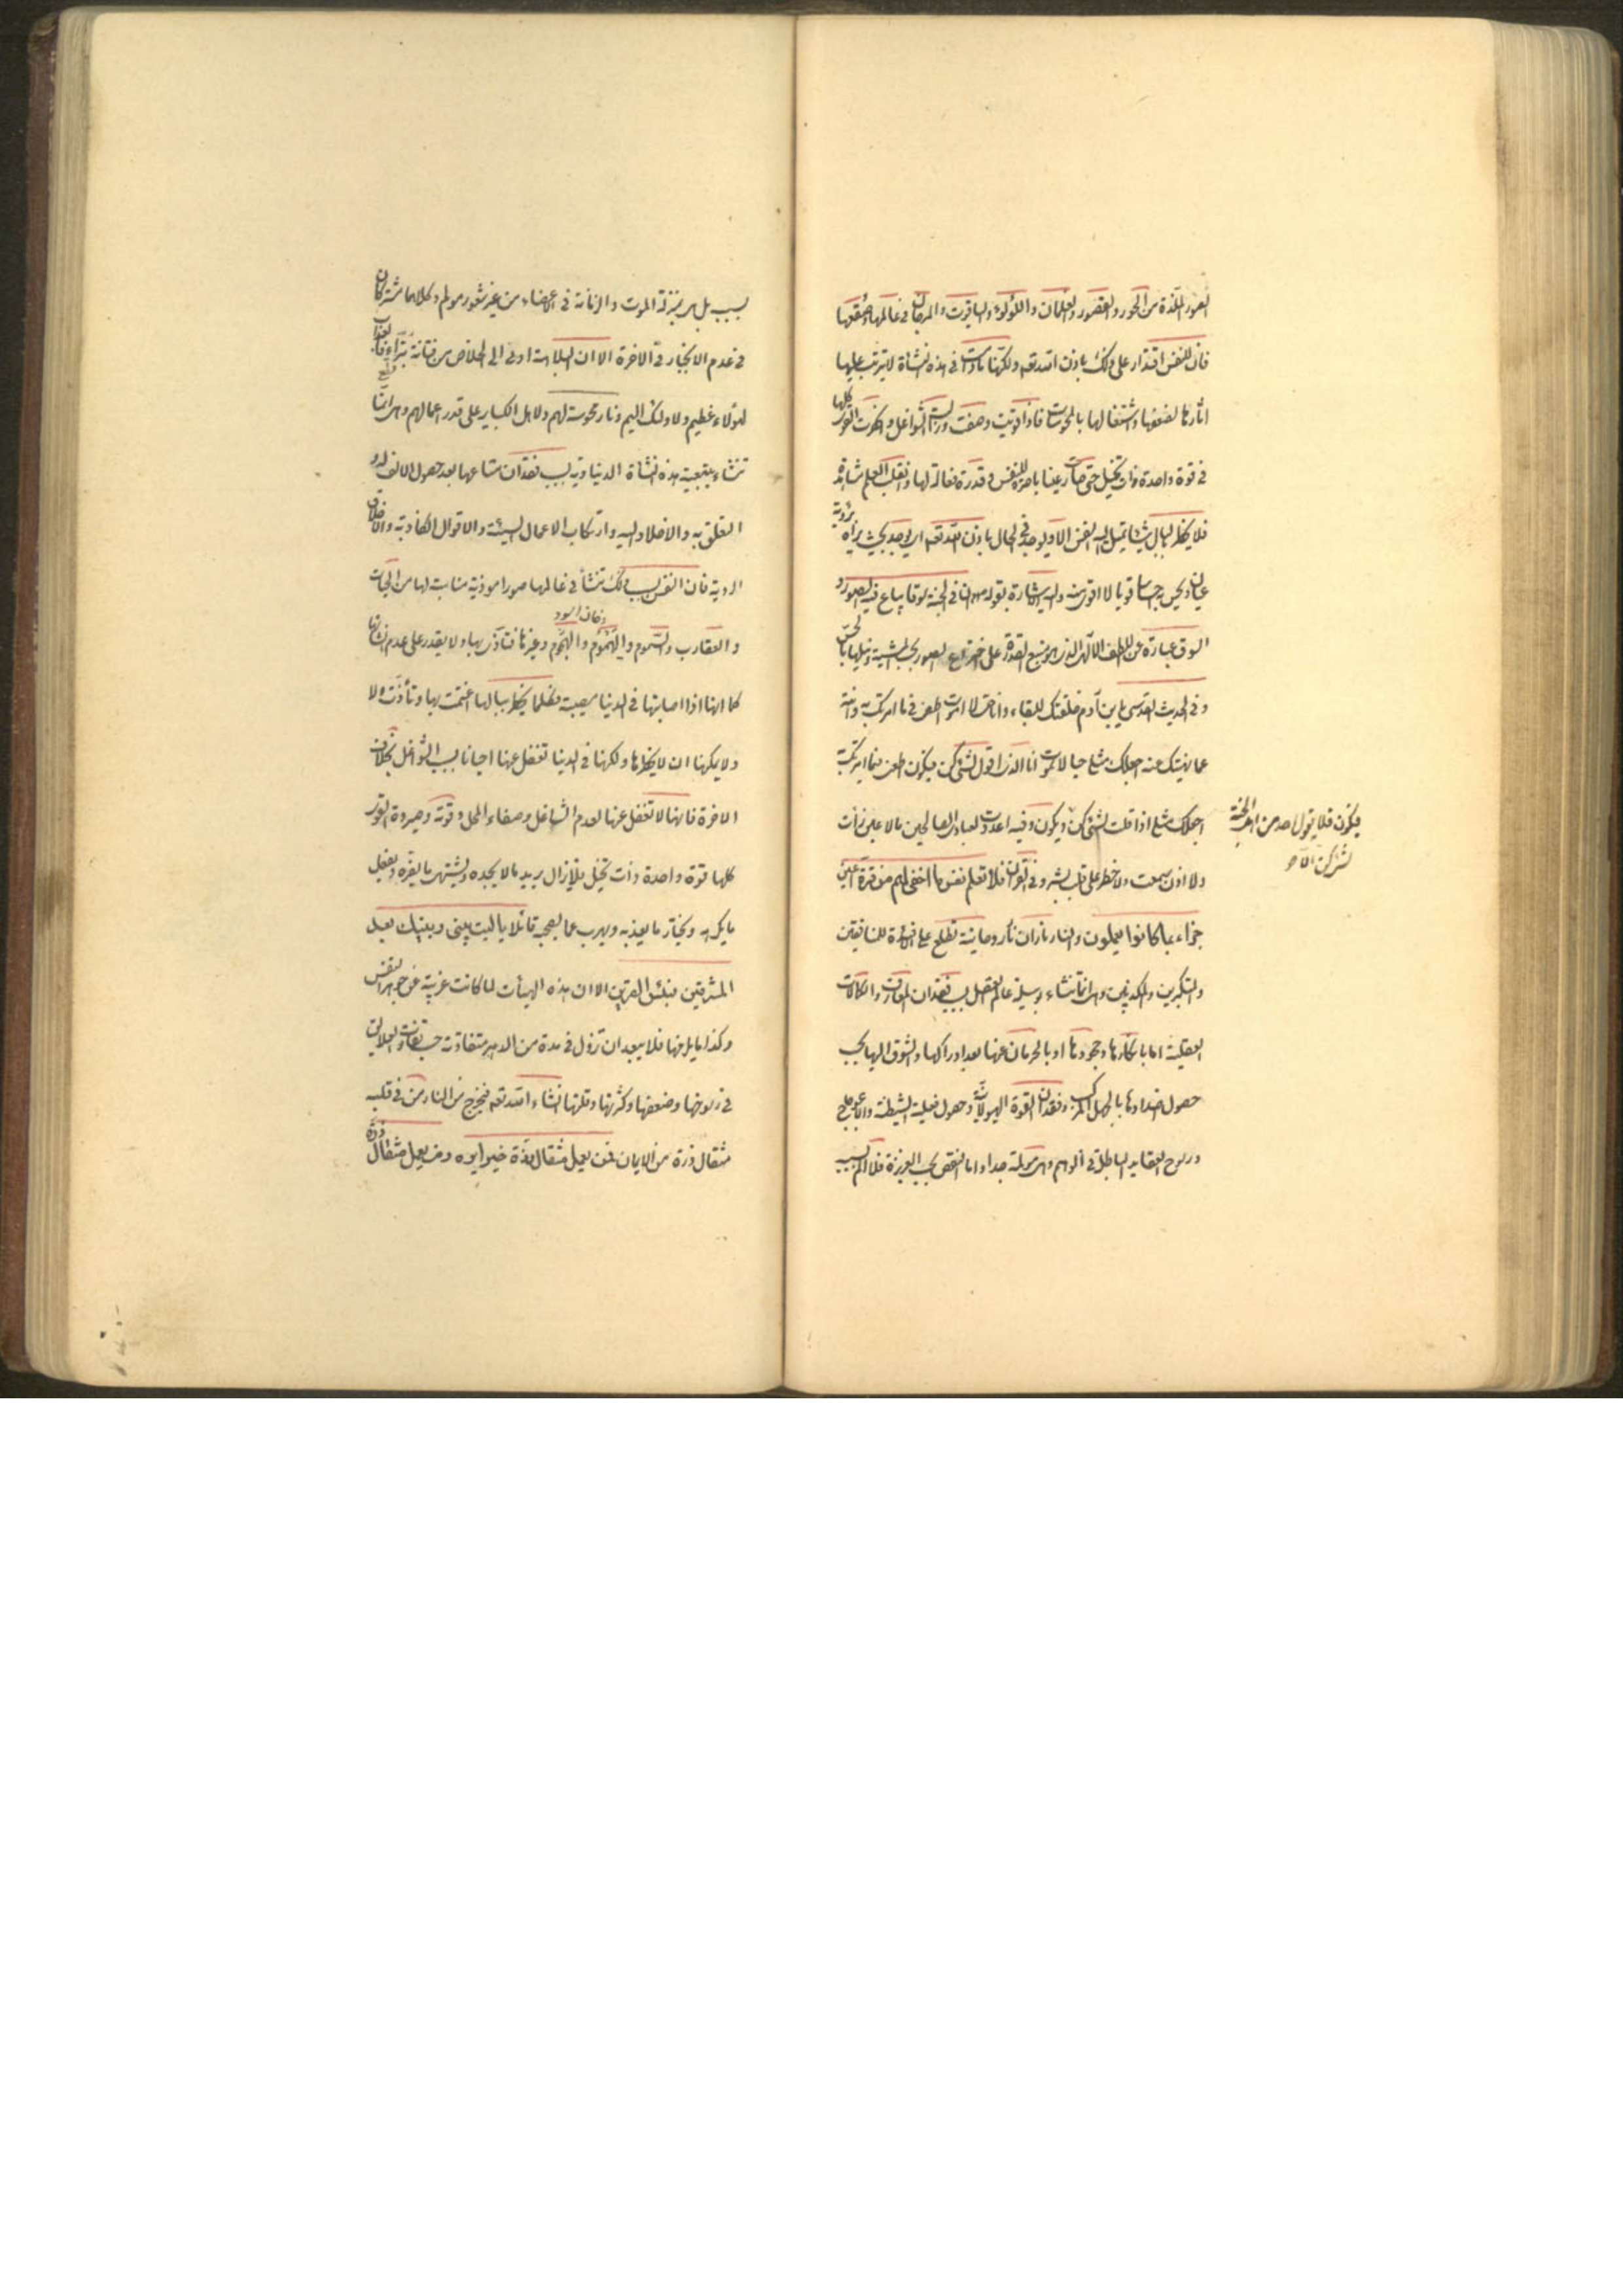 الصور الملذة من الحور والقصور والغلمان واللؤلؤ والياقوت والمرجان في عالمها وصقعها
فان للنفس اقتدار على ذلك باذن الله تعه ولكنها مادامت في هذه النشأة لا يترتب عليها
آثارها لضعفها واشتغالها بالمحسوسات فاذا قويت وصفت وزالت الشواغل وانحصرت القوى كلها
في قوة واحدة ذات تخيل حتى صارت عينا باصرة للنفس وقدرة فعالة لها وانقلب العلم مشاهدة
فلا يخطر بالبال شيئا تميل اليه النفس الا ويوجد في الحال باذن الله تعه اي يوجد بحيث يراه برؤية
عيان ويحس به احساسا قويا لا اقوى منه واليه الاشارة بقوله ان في الجنة سوقا يباع فيه الصور و
السوق عبارة عن اللطف الالهي الذي هو منبع القدرة على اختراع الصور بحسب المشية ونيلها بالحس
وفي الحديث القدسي يا بن آدم خلقتك للبقاء وانا حي لا اموت اطعني فيما امرتك به وانته
عما نهيتك عنه اجعلك مثلي حيا لا تموت انا الذي اقول لشئ كن فيكون اطعني فيما امرتك به
اجعلك مثلي اذا قلت لشئ كن ويكون وفيه اعددت لعبادي الصالحين ما لا عين رأت
فيكون فلا يقول احد من اهل الجنة
لشئ كن الا و
ولا اذن سمعت ولا خطر على قلب بشر وفي القرآن فلا تعلم نفس ما اخفي لهم من قرة اعين
جزاء بما كانوا يعملون والنار ناران نار روحانية تطلع على الافئدة للمنافقين
والمتكبرين والمكذبين وهي انما تنشاء بوسيلة عالم العقل بسبب فقدان المعارف والكمالات
العقلية اما بانكارها وجحودها او بالحرمان عنها بعد ادراكها والشوق اليها بحسب
حصول اضدادها بالجهل المركب وفقدان القوة الهيولانية وحصول فعلية الشيطنة والاعوجاج
ورسوخ العقايد الباطلة في الوهم وهي مؤلمة جدا واما النقص بحسب الغريزة فلا الم بسببه
بسبب بل هي بمنزلة الموت والزمانة في الاعضاء من غير شعور مؤلم وكلاهما مشتركان
في عدم الانجبار في الاخرة الا ان البلاهة ادنى الى الخلاص من فطانة بتراء فالعذاب
لهؤلاء عظيم ولاولئك اليم ونار محسوسة لهم ولاهل الكباير على قدر اعمالهم وهي انما
تنشاء بتبعية هذه النشأة الدنياوية بسبب فقدان متاعها بعد حصول الالف له و
التعلق به والاخلاد اليه وارتكاب الاعمال السيئة والاقوال الكاذبة والاخلاق
الردية فان النفس بسبب ذلك تنشأ في عالمها صورا موذية مناسبة لها من الحيات
والعقارب والسموم واليحموم والهموم وغيرها فتتأذى بها ولا يقدر على عدم انشائها
دخان اسود
كما انها اذا اصابتها في الدنيا مصيبة فكلما يخطر ببالها اغتمت بها وتأذت ولا
ولا يمكنها ان لا يخطرها ولكنها في الدنيا تغفل عنها احيانا بسبب الشواغل بخلاف
الاخرة فانها لا تغفل عنها لعدم الشاغل وصفاء المحل وقوته وصيرورة القوى
كلها قوة واحدة ذات تخيل فلا يزال يريد ما لا يجده ويشتهي ما يضره ويفعل
ما يكرهه ويختار ما يعذبه ويهرب عما يصحبه قائلا يا ليت بيني وبينك بعد
المشرقين فبئس القرين الا ان هذه الهيئات لما كانت غريبة عن جوهر النفس
وكذا ما يلزمها فلا يبعد ان تزول في مدة من الدهر متفاوتة حسب تفاوت العلايق
في رسوخها وضعفها وكثرتها وقلتها انشاء الله تعه فيخرج من النار من في قلبه
مثقال ذرة من الايمان فمن يعمل مثقال ذرة خيرا يره ومن يعمل مثقال ذرة